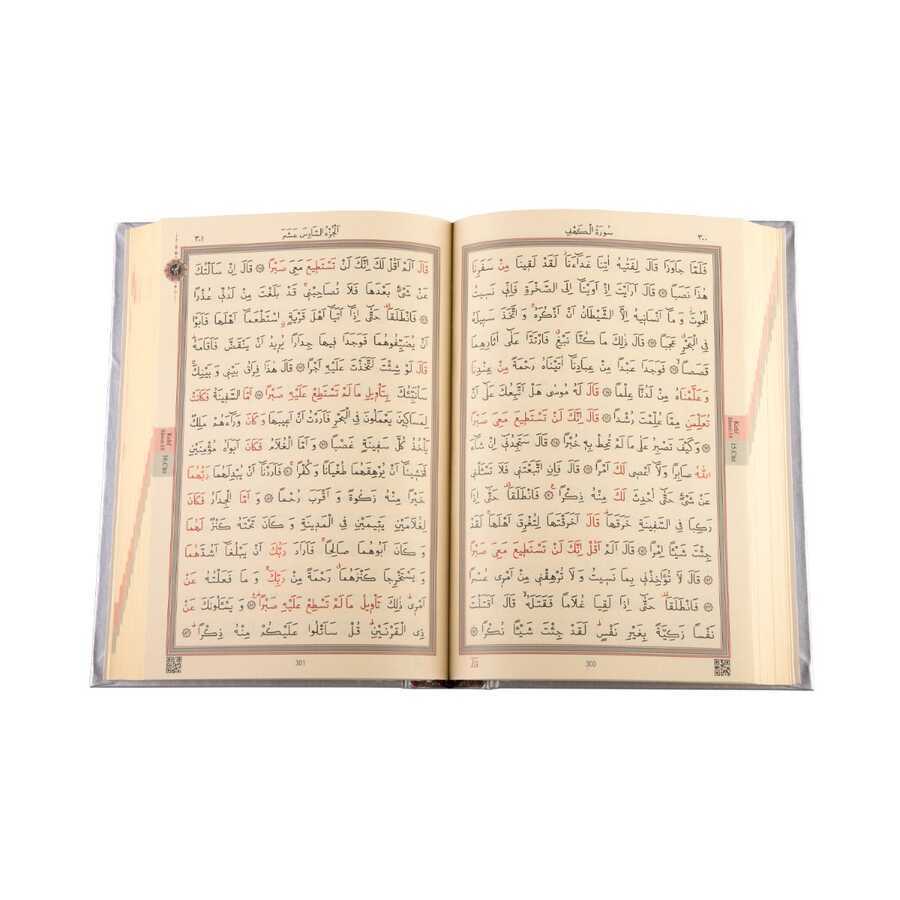 ٣٠٠
سُورَةُ الْكَهْفِ
فَلَمَّا جَاوَزَا قَالَ لِفَتٰيهُ اٰتِنَا غَدَٓاءَنَا لَقَدْ لَقٖينَا مِنْ سَفَرِنَا
هٰذَا نَصَبًا ۝ قَالَ اَرَاَيْتَ اِذْ اَوَيْنَٓا اِلَى الصَّخْرَةِ فَاِنّٖي نَسٖيتُ
الْحُوتَ وَ مَٓا اَنْسَانٖيهُ اِلَّا الشَّيْطَانُ اَنْ اَذْكُرَهُ وَ اتَّخَذَ سَبٖيلَهُ
فِي الْبَحْرِ عَجَبًا ۝ قَالَ ذٰلِكَ مَا كُنَّا نَبْغِ فَارْتَدَّا عَلٰٓى اٰثَارِهِمَا
قَصَصًا ۝ فَوَجَدَا عَبْدًا مِنْ عِبَادِنَٓا اٰتَيْنَاهُ رَحْمَةً مِنْ عِنْدِنَا
وَ عَلَّمْنَاهُ مِنْ لَدُنَّا عِلْمًا ۝ قَالَ لَهُ مُوسٰى هَلْ اَتَّبِعُكَ عَلٰٓى اَنْ
تُعَلِّمَنِ مِمَّا عُلِّمْتَ رُشْدًا ۝ قَالَ اِنَّكَ لَنْ تَسْتَطٖيعَ مَعِيَ صَبْرًا
۝ وَ كَيْفَ تَصْبِرُ عَلٰى مَا لَمْ تُحِطْ بِهٖ خُبْرًا ۝ قَالَ سَتَجِدُنٖٓي اِنْ شَٓاءَ
اللّٰهُ صَابِرًا وَ لَٓا اَعْصٖي لَكَ اَمْرًا ۝ قَالَ فَاِنِ اتَّبَعْتَنٖي فَلَا تَسْـَٔلْنٖي
عَنْ شَيْءٍ حَتّٰٓى اُحْدِثَ لَكَ مِنْهُ ذِكْرًا ۝ فَانْطَلَقَا حَتّٰٓى اِذَا
رَكِبَا فِي السَّفٖينَةِ خَرَقَهَا قَالَ اَخَرَقْتَهَا لِتُغْرِقَ اَهْلَهَا لَقَدْ
جِئْتَ شَيْـًٔا اِمْرًا ۝ قَالَ اَلَمْ اَقُلْ اِنَّكَ لَنْ تَسْتَطٖيعَ مَعِيَ صَبْرًا
۝ قَالَ لَا تُؤَاخِذْنٖي بِمَا نَسٖيتُ وَ لَا تُرْهِقْنٖي مِنْ اَمْرٖي عُسْرًا
۝ فَانْطَلَقَا حَتّٰٓى اِذَا لَقِيَا غُلَامًا فَقَتَلَهُ قَالَ اَقَتَلْتَ
نَفْسًا زَكِيَّةً بِغَيْرِ نَفْسٍ لَقَدْ جِئْتَ شَيْـًٔا نُكْرًا ۝
300
Kehf
Suresi-18
15.Cüz
اَلْجُزْءُ السَّادِسَ عَشَرَ
٣٠١
قَالَ اَلَمْ اَقُلْ لَكَ اِنَّكَ لَنْ تَسْتَطٖيعَ مَعِيَ صَبْرًا ۝ قَالَ اِنْ سَاَلْتُكَ
عَنْ شَيْءٍ بَعْدَهَا فَلَا تُصَاحِبْنٖي قَدْ بَلَغْتَ مِنْ لَدُنّٖي عُذْرًا
۝ فَانْطَلَقَا حَتّٰٓى اِذَٓا اَتَيَٓا اَهْلَ قَرْيَةٍ اسْتَطْعَمَٓا اَهْلَهَا فَاَبَوْا
اَنْ يُضَيِّفُوهُمَا فَوَجَدَا فٖيهَا جِدَارًا يُرٖيدُ اَنْ يَنْقَضَّ فَاَقَامَهُ
قَالَ لَوْ شِئْتَ لَتَّخَذْتَ عَلَيْهِ اَجْرًا ۝ قَالَ هٰذَا فِرَاقُ بَيْنٖي وَ بَيْنِكَ
سَاُنَبِّئُكَ بِتَاْوٖيلِ مَا لَمْ تَسْتَطِعْ عَلَيْهِ صَبْرًا ۝ اَمَّا السَّفٖينَةُ فَكَانَتْ
لِمَسَاكٖينَ يَعْمَلُونَ فِي الْبَحْرِ فَاَرَدْتُ اَنْ اَعٖيبَهَا وَ كَانَ وَرَٓاءَهُمْ مَلِكٌ
يَاْخُذُ كُلَّ سَفٖينَةٍ غَصْبًا ۝ وَ اَمَّا الْغُلَامُ فَكَانَ اَبَوَاهُ مُؤْمِنَيْنِ
فَخَشٖينَٓا اَنْ يُرْهِقَهُمَا طُغْيَانًا وَ كُفْرًا ۝ فَاَرَدْنَٓا اَنْ يُبْدِلَهُمَا رَبُّهُمَا
خَيْرًا مِنْهُ زَكٰوةً وَ اَقْرَبَ رُحْمًا ۝ وَ اَمَّا الْجِدَارُ فَكَانَ
لِغُلَامَيْنِ يَتٖيمَيْنِ فِي الْمَدٖينَةِ وَ كَانَ تَحْتَهُ كَنْزٌ لَهُمَا
وَ كَانَ اَبُوهُمَا صَالِحًا فَاَرَادَ رَبُّكَ اَنْ يَبْلُغَٓا اَشُدَّهُمَا
وَ يَسْتَخْرِجَا كَنْزَهُمَا رَحْمَةً مِنْ رَبِّكَ وَ مَا فَعَلْتُهُ عَنْ
اَمْرٖي ذٰلِكَ تَاْوٖيلُ مَا لَمْ تَسْطِعْ عَلَيْهِ صَبْرًا ۝ وَ يَسْـَٔلُونَكَ عَنْ
ذِي الْقَرْنَيْنِ قُلْ سَاَتْلُوا عَلَيْكُمْ مِنْهُ ذِكْرًا ۝
301
Kehf
Suresi-18
16.Cüz